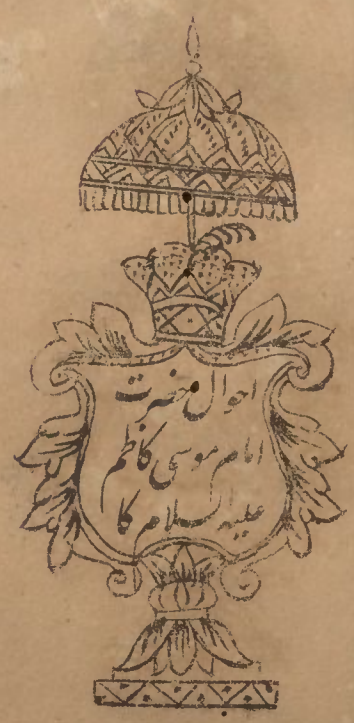 احوال حضرت
امام موسی کاظم
علیہ السلام کا